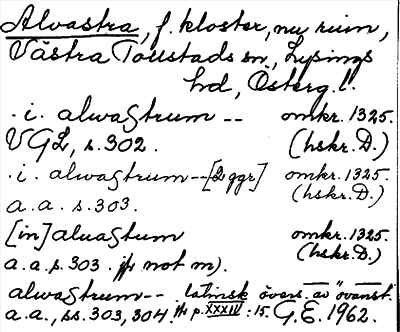 Alvastra, f. kloster, nu ruin,
Västra Tollstads sn, Lysings
hd, Österg. l.
.i. alwastrum -- omkr. 1325.
VGL, s. 302. (hskr. D.)
.i. alwastrum--[2 ggr] omkr. 1325.
a.a. s. 303. (hskr. D.)
[in] aluastum omkr. 1325.
a.a. s. 303. jfr not m). (hskr. D.)
alwastrum-- latinsk övers. av "ovanst."
a.a., ss. 303, 304. jfr p. XXXIV : 15. G.E. 1962.